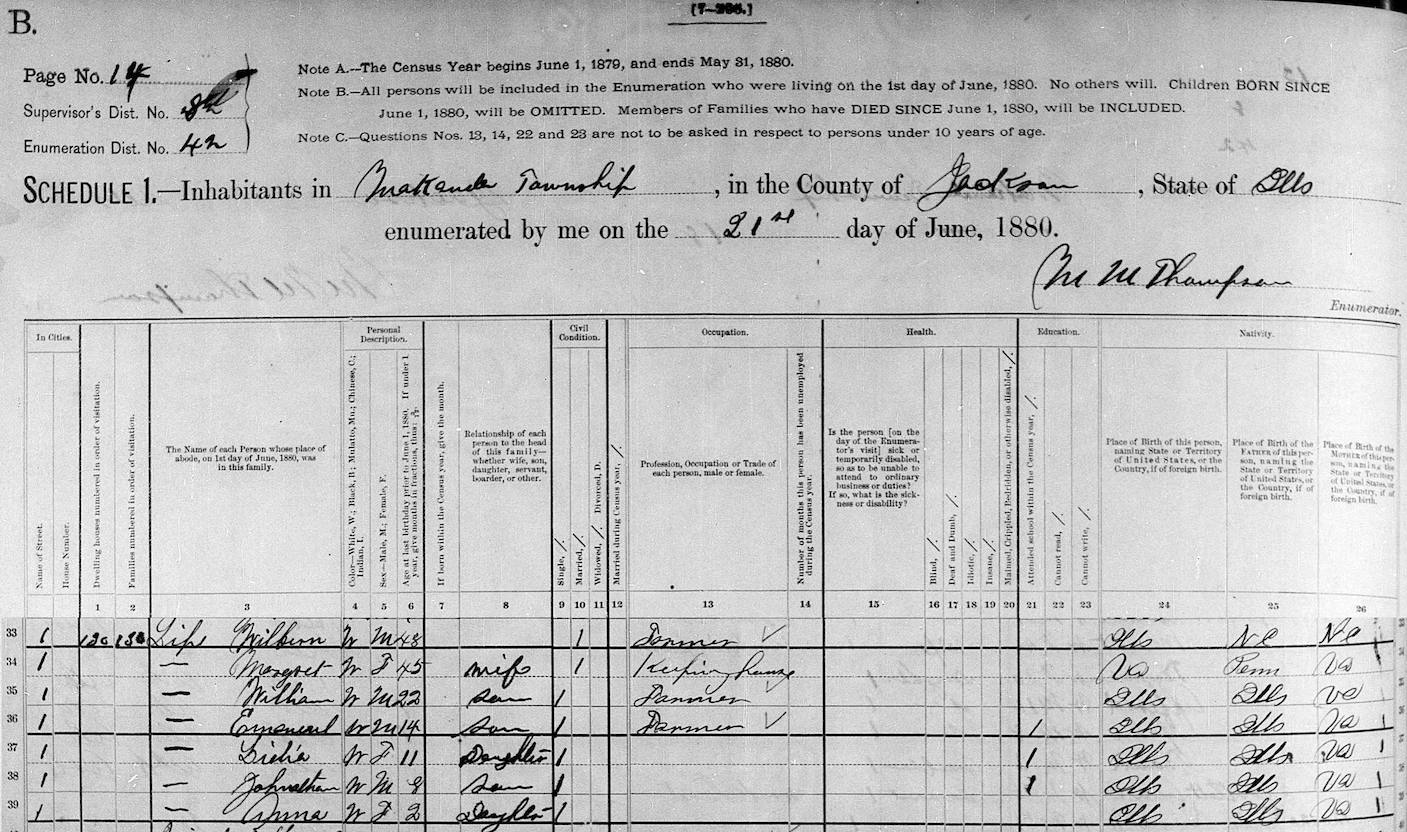 B.
Page No. 14
Supervisor's Dist. No. 8th
Enumeration Dist. No. 42
Note A.—The Census Year begins June 1, 1879, and ends May 31, 1880.
Note B.—All persons will be included in the Enumeration who were living on the 1st day of June, 1880. No others will. Children BORN SINCE
June 1, 1880, will be OMITTED. Members of Families who have DIED SINCE June 1, 1880, will be INCLUDED.
Note C.—Questions Nos. 13, 14, 22 and 23 are not to be asked in respect to persons under 10 years of age.
SCHEDULE 1.—Inhabitants in Makanda Township, in the County of Jackson, State of Ills
enumerated by me on the 21st day of June, 1880.
M M Thompson
Enumerator.
In Cities.
Name of Street.
House Number.
Dwelling houses numbered in order of visitation.
Families numbered in order of visitation.
The Name of each Person whose place of
abode, on 1st day of June, 1880, was
in this family.
Personal
Description.
Color—White, W; Black, B; Mulatto, Mu.; Chinese, C;
Indian, I.
Sex—Male, M.; Female, F.
Age at last birthday prior to June 1, 1880. If under 1
year, give months in fractions, thus:
If born within the Census year, give the month.
Relationship of each
person to the head
of this family—
whether wife, son,
daughter, servant,
boarder, or other.
Civil
Condition.
Single, /.
Married, /.
Widowed, /. Divorced, D.
Married during Census year, /.
Occupation.
Profession, Occupation or Trade of
each person, male or female.
Number of months this person has been unemployed
during the Census year.
Health.
Is the person [on the
day of the Enumera-
tor's visit] sick or
temporarily disabled,
so as to be unable to
attend to ordinary
business or duties?
If so, what is the sick-
ness or disability?
Blind, /.
Deaf and Dumb, /.
Idiotic, /.
Insane, /.
Maimed, Crippled, Bedridden, or otherwise disabled, /.
Education.
Attended school within the Census year, /.
Cannot read, /.
Cannot write, /.
Nativity.
Place of Birth of this person,
naming State or Territory
of United States, or the
Country, if of foreign birth.
Place of Birth of the
FATHER of this per-
son, naming the
State or Territory
of United States, or
the Country, if of
foreign birth.
Place of Birth of the
MOTHER of this per-
son, naming the
State or Territory
of United States, or
the Country, if of
foreign birth.
1 2 3 4 5 6 7 8 9 10 11 12 13 14 15 16 17 18 19 20 21 22 23 24 25 26
33 1 130 Wilburn W M 48 1 Farmer Ills NC NC
34 1 — Margret W F 45 wife 1 Keeping house Va Penn Va
35 1 — William W M 22 son 1 Farmer Ills Ills Va
36 1 — W M 14 son 1 Farmer 1 Ills Ills Va
37 1 — W F 11 Daughter 1 1 Ills Ills Va
38 1 — Johnathan W M 8 son 1 1 Ills Ills Va
39 1 — Anna W F 2 Daughter 1 Ills Ills Va